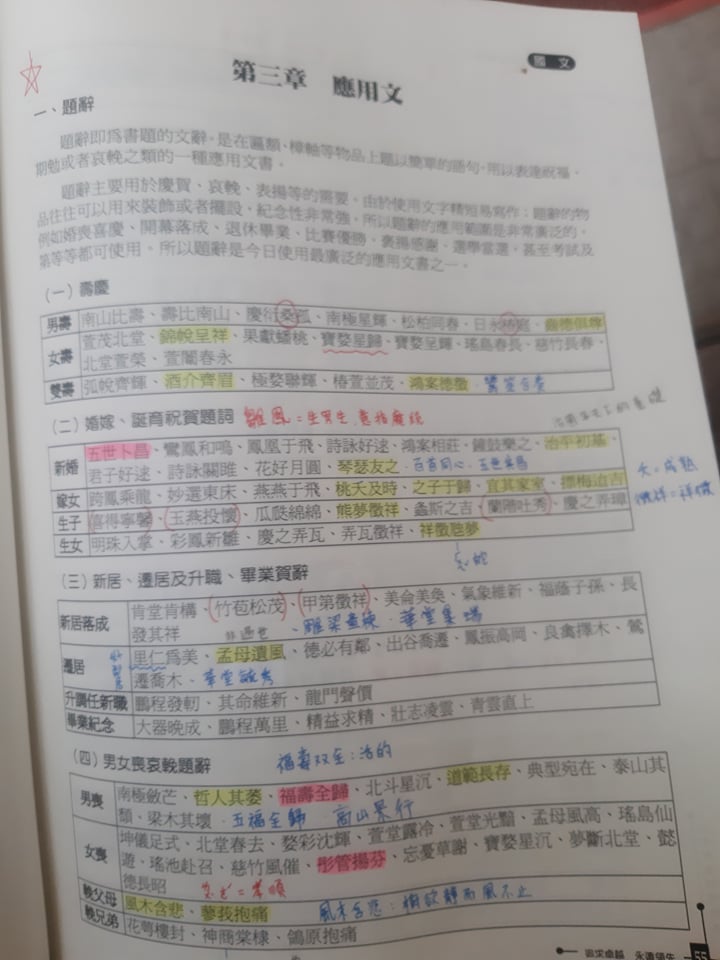 國文
第三章 應用文
一、題辭
題辭即為書題的文辭,是在匾額、樟軸等物品上題以簡單的語句,用以表達祝福、
期勉或者哀輓之類的一種應用文書。
題辭主要用於慶賀、哀輓、表揚等的需要。由於使用文字精短易寫作;題辭的物
品往往可以用來裝飾或者擺設,紀念性非常強,所以題辭的應用範圍是非常廣泛的。
例如婚喪喜慶、開幕落成、退休畢業、比賽優勝、褒揚感謝、選舉當選,甚至考試及
第等等都可使用。所以題辭是今日使用最廣泛的應用文書之一。
(一)壽慶
男壽 南山比壽、壽比南山、慶衍桑弧、南極星輝、松柏同春、日永椿庭、齒德俱尊
女壽 萱茂北堂、錦帨呈祥、果獻蟠桃、寶婺星歸、寶婺呈輝、瑤島春長、慈竹長春、
北堂萱榮、萱閣春永
雙壽 弧帨齊輝、酒介齊眉、極婺聯輝、椿萱並茂、鴻案德徵
(二)婚嫁、誕育祝賀題詞 雛鳳=生男生
新婚 五世卜昌、鸞鳳和鳴、鳳凰于飛、詩詠好逑、鴻案相莊、鐘鼓樂之、治平初基、
君子好逑、詩詠關雎、花好月圓、琴瑟友之、百年同心、五世其昌
嫁女 跨鳳乘龍、妙選東床、燕燕于飛、桃夭及時、之子于歸、宜其家室、摽梅迨吉
夭=成熟
生子 喜得寧馨、玉燕投懷、瓜瓞綿綿、熊夢徵祥、螽斯之吉、蘭階吐秀、慶之弄璋
生女 明珠入掌、彩鳳新雛、慶之弄瓦、弄瓦徵祥、祥徵虺夢
(三)新居、遷居及升職、畢業賀辭
新居落成 肯堂肯構、竹苞松茂、甲第徵祥、美侖美奐、氣象維新、福蔭子孫、長
發其祥
遷居 里仁為美、孟母遺風、德必有鄰、出谷喬遷、鳳振高岡、良禽擇木、鶯
遷喬木、華堂毓秀
升調任新職 鵬程發軔、其命維新、龍門聲價
畢業紀念 大器晚成、鵬程萬里、精益求精、壯志凌雲、青雲直上
(四)男女喪哀輓題辭 福壽双全:活的
男喪 南極斂芒、哲人其萎、福壽全歸、北斗星沉、道範長存、典型宛在、泰山其
頹、梁木其壞、五福全歸 高山景行
女喪 坤儀足式、北堂春去、婺彩沈輝、萱堂露冷、萱堂光黯、孟母風高、瑤島仙
遊、瑤池赴召、慈竹風催、彤管揚芬、忘憂草謝、寶婺星沉、夢斷北堂、懿
德長昭
輓父母 風木含悲、蓼莪抱痛 風木含悲:樹欲靜而風不止
輓兄弟 花萼樓封、神商棠棣、鴒原抱痛
追求卓越 永遠領先 55